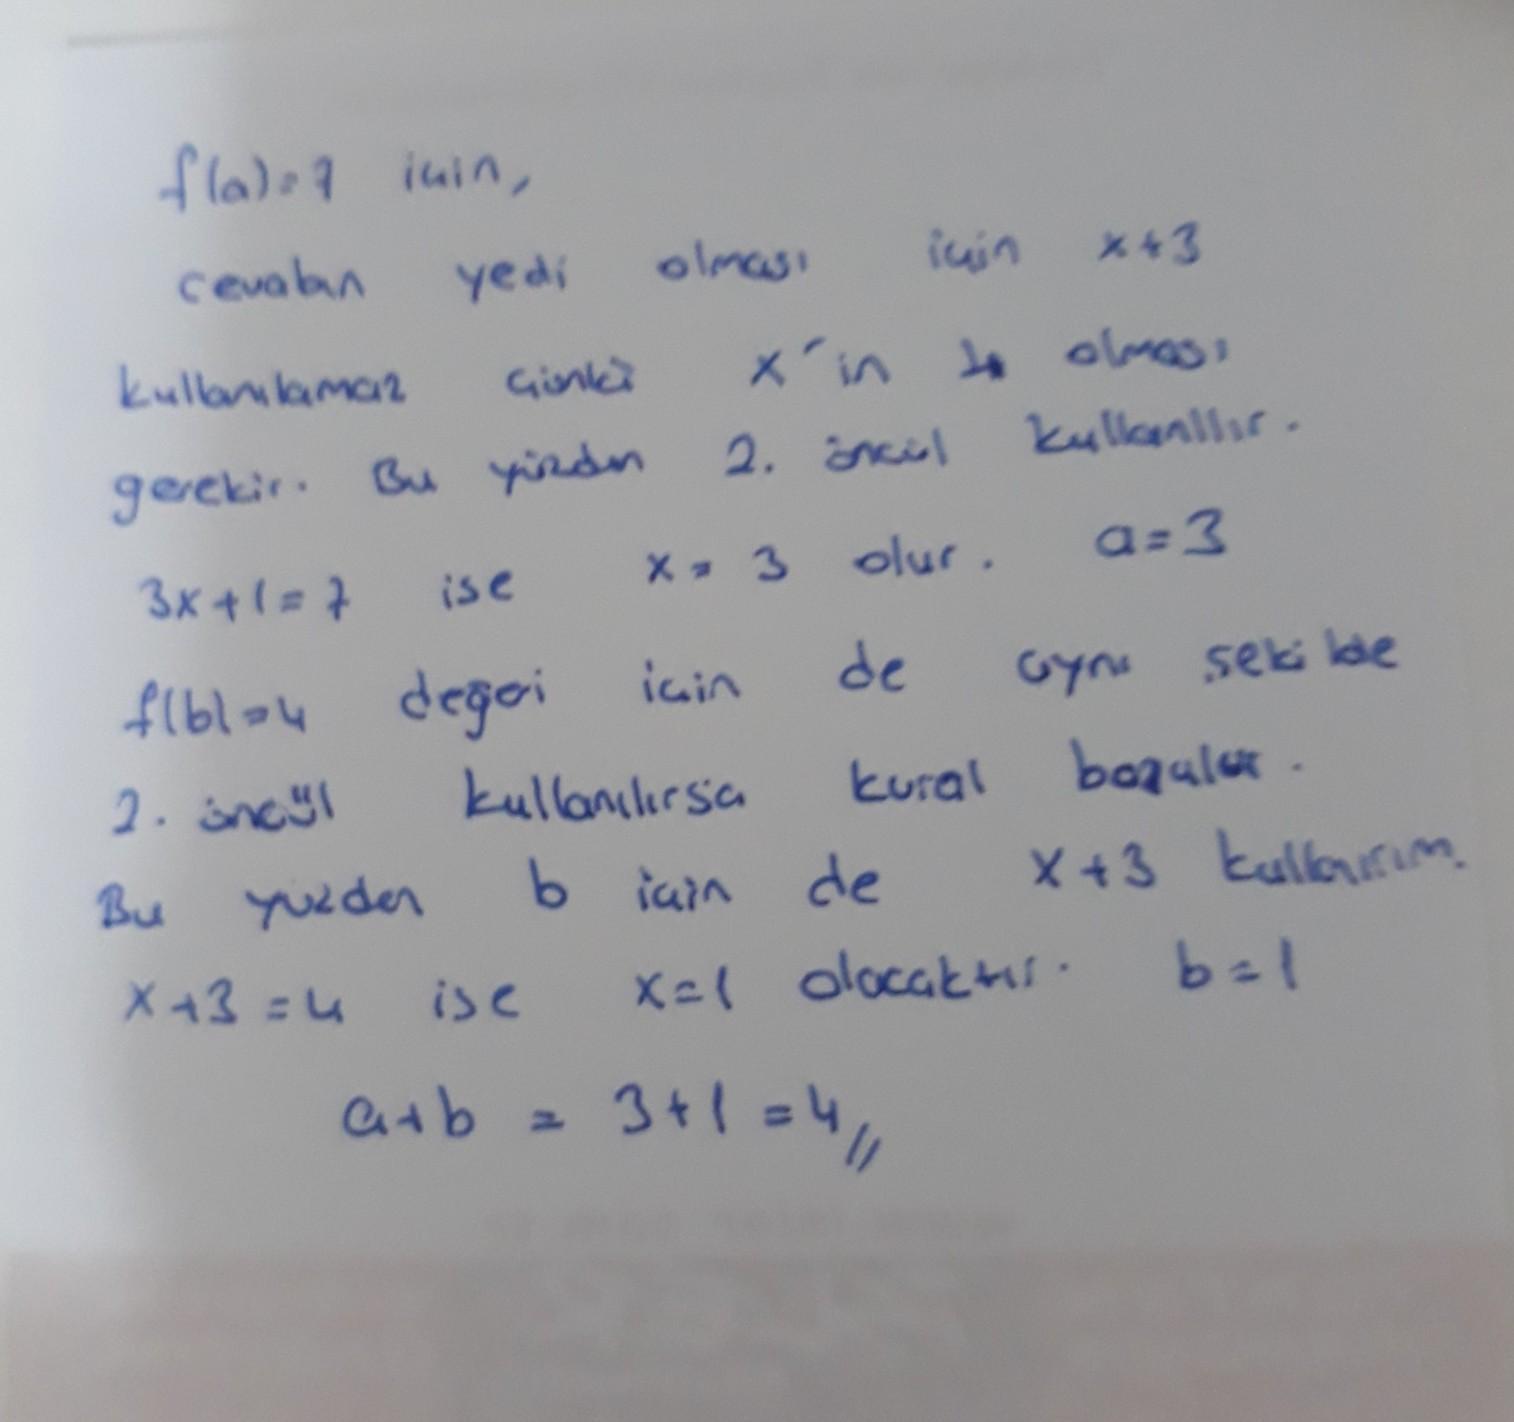 f(a)=7 için,
cevabın yedi olması için x+3
kullanılamaz çünkü x'in olması
gerekir. Bu yüzden 2. öncül kullanılır.
3x+1=7 ise x=3 olur. a=3
f(b)=4 değeri için de aynı şekilde
2. öncül kullanılırsa kural bozulur.
Bu yüzden b için de x+3 kullanırım.
x+3=4 ise x=1 olacaktır. b=1
a+b = 3+1=4//